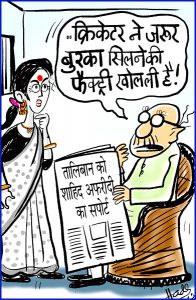 ..क्रिकेटर ने जरूर
बुरका सिलने की
फैक्ट्री खोलली है!
तालिबान को
शाहिद अफरीदी
का सपोर्ट